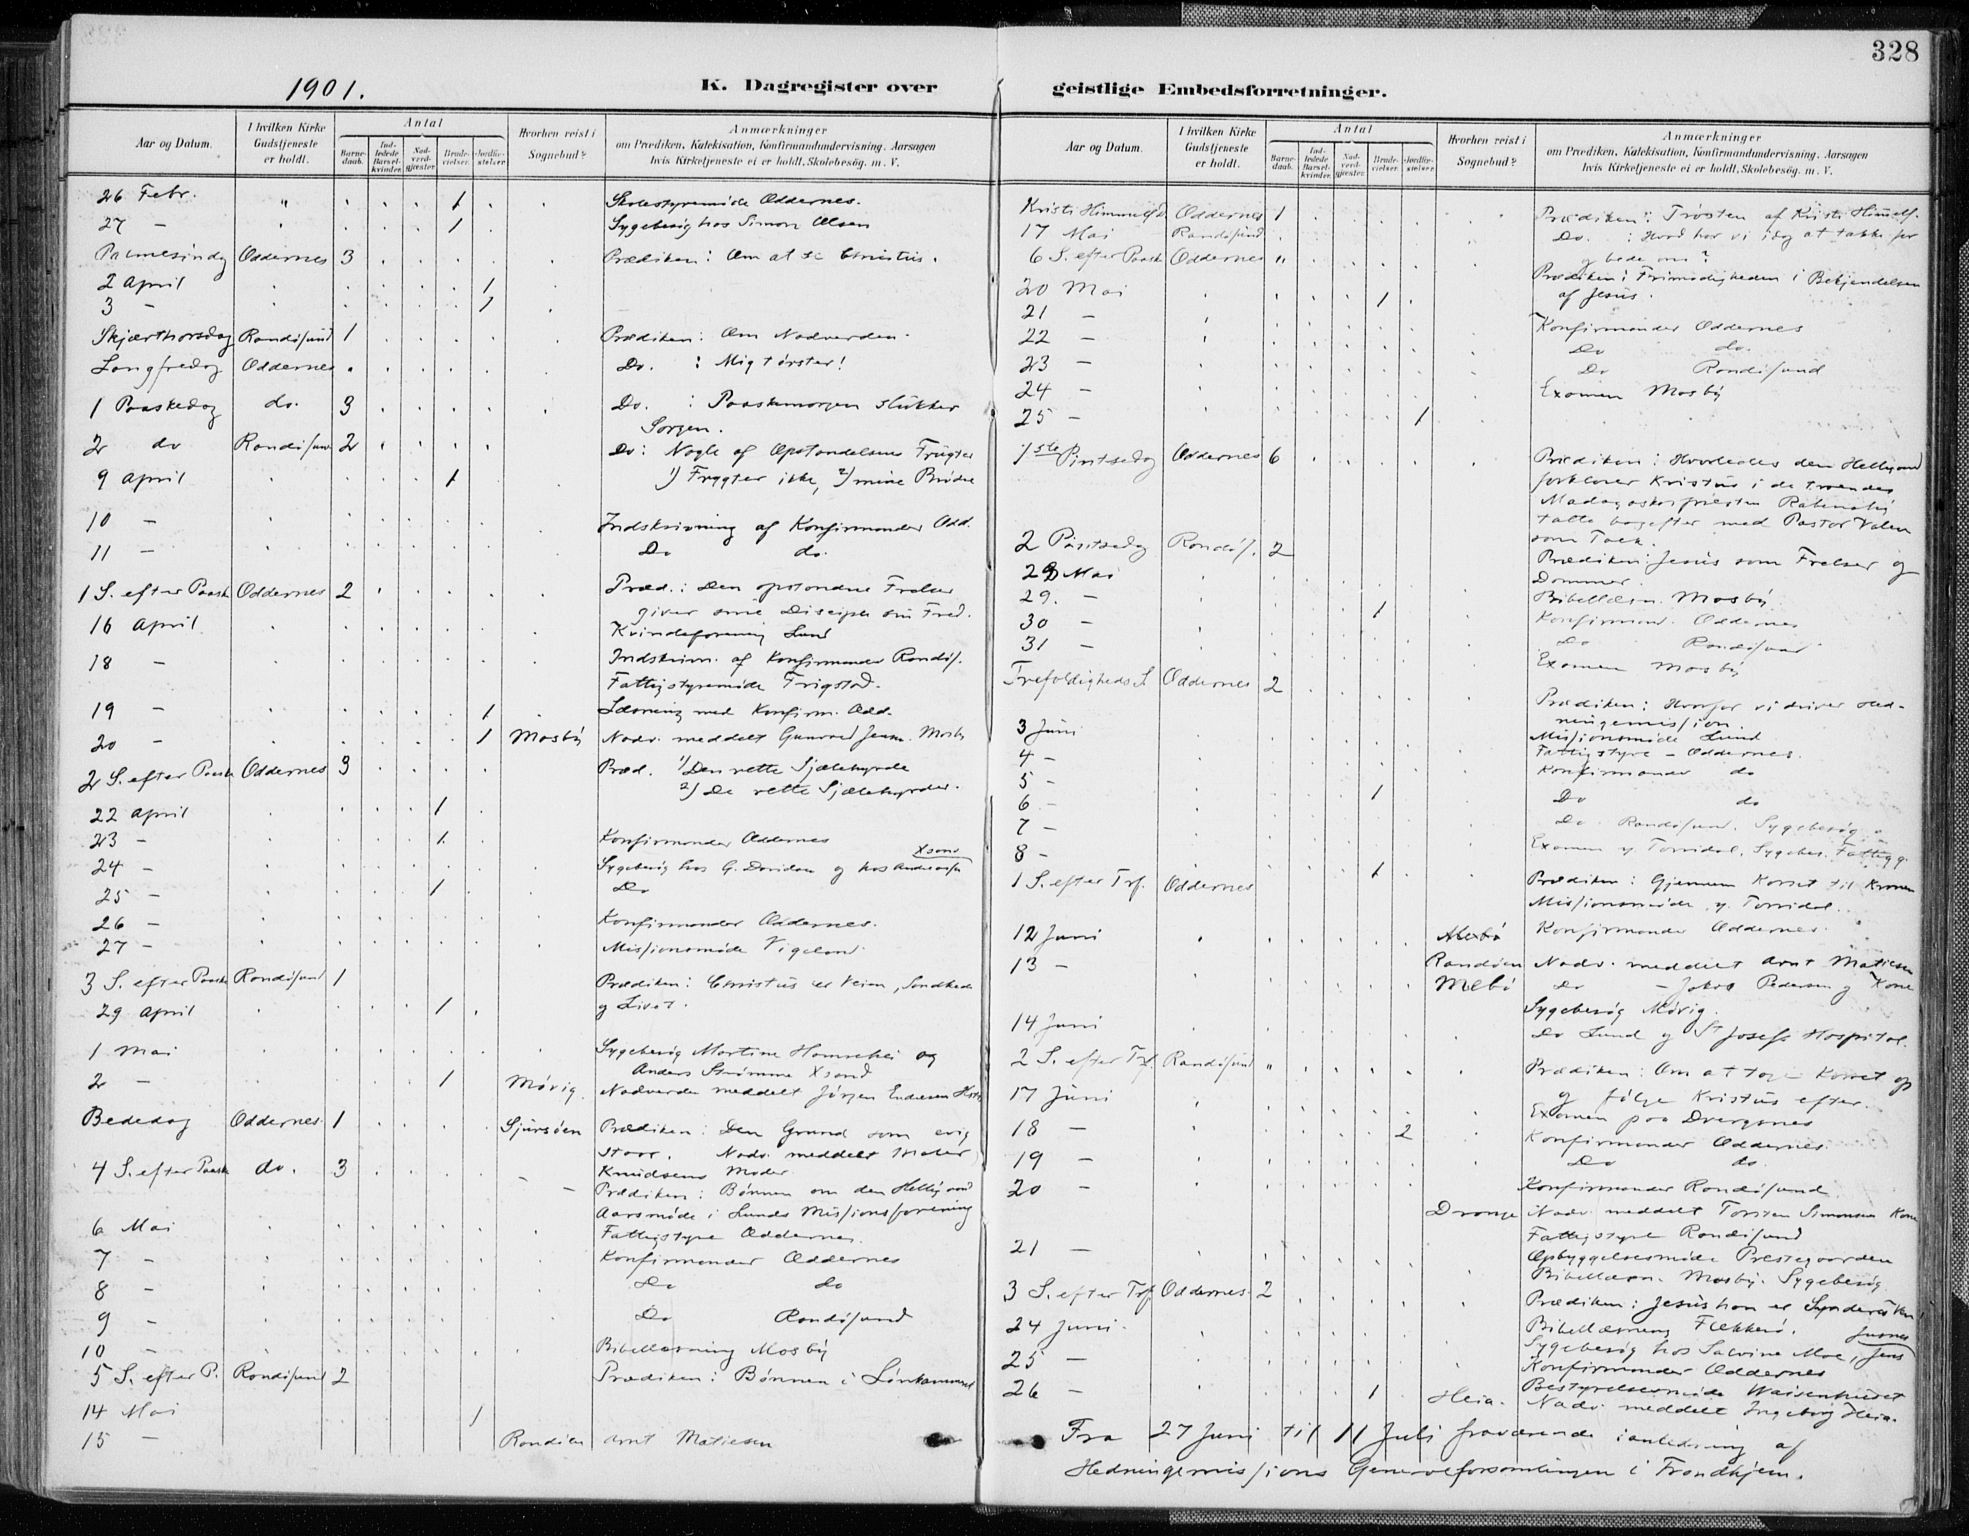 328
1901.
K. Dagregister over geistlige Embedsforretninger.
Aar og Datum.
I hvilken Kirke Gudstjeneste er holdt.
Antal
Barne-daab.
Ind-ledede Barsel-kvinder.
Nad-verd-gjæster.
Brude-vielser.
Jordfæ-stelser.
Hvorhen reist i Sognebud?
Anmærkninger
om Prædiken, Katekisation, Konfirmandundervisning. Aarsagen
hvis Kirketjeneste ei er holdt. Skolebesög. m. V.
26 Febr. " 1 Skolestyremöde Oddernes.
27 — 1 Sygebesög hos Simon Olsen
Palmesöndag Oddernes 3 Prædiken: Om at se Christus.
2 April 1
3 — 1
Skjærthorsdag Randösund 1 Prædiken: Om Nadverden.
Langfredag Oddernes Do. : Mig törster!
1 Paaskedag do. 3 Do. : Paaskemorgen slukker
Sorgen.
2 do Randösund 2 Do: Nogle af Opstandelsens Frugter
9 April 1 1) Frygter ikke, 2) mine Brödre
10 — Indskrivning af Konfirmander Odd.
11 — Do do.
1 S. efter Paaske Oddernes 2 Præd.: Den opstandne Frelser
giver sine Disciple sin Fred.
16 April Kvindeforening Lund
18 — Indskrivn. af Konfirmander Randös.
Fattigstyremöde Frigstad.
19 — 1 Læsning med Konfirm. Odd.
20 — 1 Mosby Nadv. meddelt Gunvald Mosby
2 S. efter Paaske Oddernes 3 Præd. 1) Den rette Sjælehyrde
2) De rette Sjælehyrder.
22 April 1
23 — 1 Konfirmander Oddernes
24 — Sygebesög hos G. Davidsen og hos Andersen Xsand
25 — 1 Do
26 — Konfirmander Oddernes.
27 — Missionsmöde Vigeland
3 S. efter Paaske Randösund 1 Prædiken: Christus er Veien, Sandheden
29 April 1 og Livet.
1 Mai Sygebesög Martine Homrehei og
Anders Strömme Xsand
2 — 1 Mövig. Nadverde meddelt Jörgen Endresen
Bededag Oddernes 1 Sjursöen Prædiken: Den Grund som evig
staar. Nadv. meddelt
Knudsens Moder
4 S. efter Paaske do. 3 Prædiken: Bönnen om den Helligaand
Aarsmöde i Lunds Missionsforening
6 Mai Fattigstyre Oddernes.
7 — Konfirmander Oddernes
8 — Do do
9 — Do Randösund
10 — Bibellæsning Mosby
5 S. efter P. Randösund 2 Prædiken: Bönnen i Lönkammeret
14 Mai 1
15 — Randöen Arnt Matiesen
Aar og Datum.
I hvilken Kirke Gudstjeneste er holdt.
Antal
Barne-daab.
Ind-ledede Barsel-kvinder.
Nad-verd-gjæster.
Brude-vielser.
Jordfæ-stelser.
Hvorhen reist i Sognebud?
Anmærkninger
om Prædiken, Katekisation, Konfirmandundervisning. Aarsagen
hvis Kirketjeneste ei er holdt, Skolebesög. m. V.
Kristi Himmelfd. Oddernes 1 Prædiken: Trösten af Kristi Himmelf.
17 Mai Randösund Do. : Hvad har vi idag at takke for
og bede om?
6 S. efter Paaske Oddernes " Prædiken: Frimodigheden i Bekjendelsen
af Jesus.
20 Mai 1
21 — Konfirmander Oddernes
22 — Do do.
23 — Do Randösund
24 — Examen Mosby
25 — 1
1ste Pintsedag Oddernes 6 Prædiken: Hvorledes den Helligaand
forklarer Kristus i de troendes
Madagaskarpresten
talte bagefter med Pastor Valen
som Tolk.
2 Pintsedag Randös. 2 Prædiken: Jesus som Frelser og
Dommer.
28 Mai Bibellæsn. Mosby
29. — 1 Konfirmand. Oddernes
30 — Do Randösund
31 — Examen Mosby
Trefoldigheds S. Oddernes 2 Prædiken: Hvorfor vi driver Hed-
ningemission.
3 Juni Missionsmöde Lund
4 — Fattigstyre — Oddernes.
5 — 1 Konfirmander do
6 — Do do
7 — Do Randösund. Sygebesög
8 — Examen y. Torridal. Sygebes.
1 S. efter Trf. Oddernes 1 Prædiken: Gjennem Korset til Kronen
Missionsmöde y. Torridal.
12 Juni Konfirmander Oddernes.
13 — Randöen Nadv. meddelt Arnt Matiesen
Mebö Do — Jakob Pedersen og Kone
Sygebesög Mövig.
14 Juni Do Lund og St Josefs Hospital.
2 S. efter Trf. Randösund " Prædiken: Om at tage Korset op
og fölge Kristus efter.
17 Juni Examen paa Dvergsnes
18 — 2 Konfirmander Oddernes.
19 — Do do.
20 — Konfirmander Randösund
Drange Nadv. meddelt Torsten Simonsen Kone
Fattigstyre Randösund
21 — Opbyggelsesmöde Prestegaarden
Bibellæsn. Mosby. Sygebesög
3 S. efter Trf. Oddernes. 2 Prædiken: Jesus han er Synderes Ven!
24 Juni Bibellæsning Flekkerö.
25 — Sygebesög hos Salvine Moe, Jens
Konfirmander Oddernes
26 — 1 Bestyrelsesmöde Waisenhuset
Heia. Nadv. meddelt Ingeborg Heia.
Fra 27 Juni til 11 Juli fraværende ianledning af
Hedningemissions Generalforsamlingen i Trondhjem.